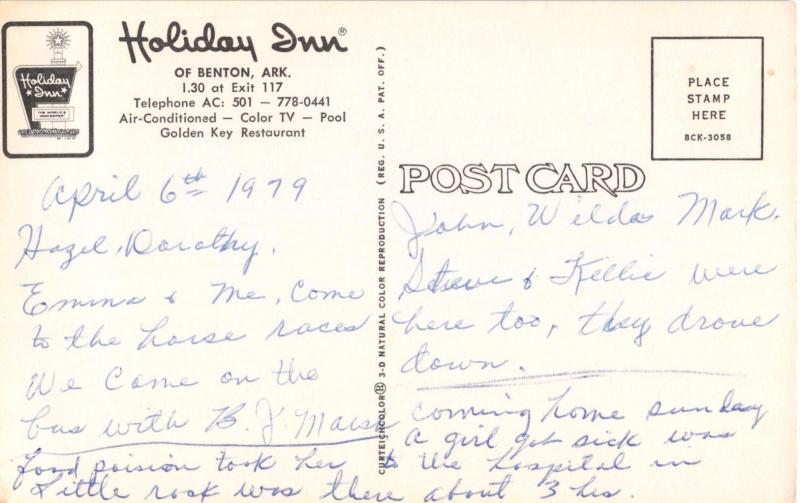 Holiday Inn®
OF BENTON, ARK.
I.30 at Exit 117
Telephone AC: 501 — 778-0441
Air-Conditioned — Color TV — Pool
Golden Key Restaurant
Holiday
Inn
April 6th 1979
Hazel, Dorothy.
Emma & Me, Come
to the horse races
We Came on the
bus with B. J. Marsh
CURTEICHCOLOR® 3-D NATURAL COLOR REPRODUCTION (REG. U. S. A. PAT. OFF.)
PLACE
STAMP
HERE
8CK-3058
POST CARD
John, Wilda Mark.
Steve & Kellie were
here too, they drove
down.
Coming home sunday
a girl got sick was
food poision took her to the hospital in
Little rock was there about 3 hrs.